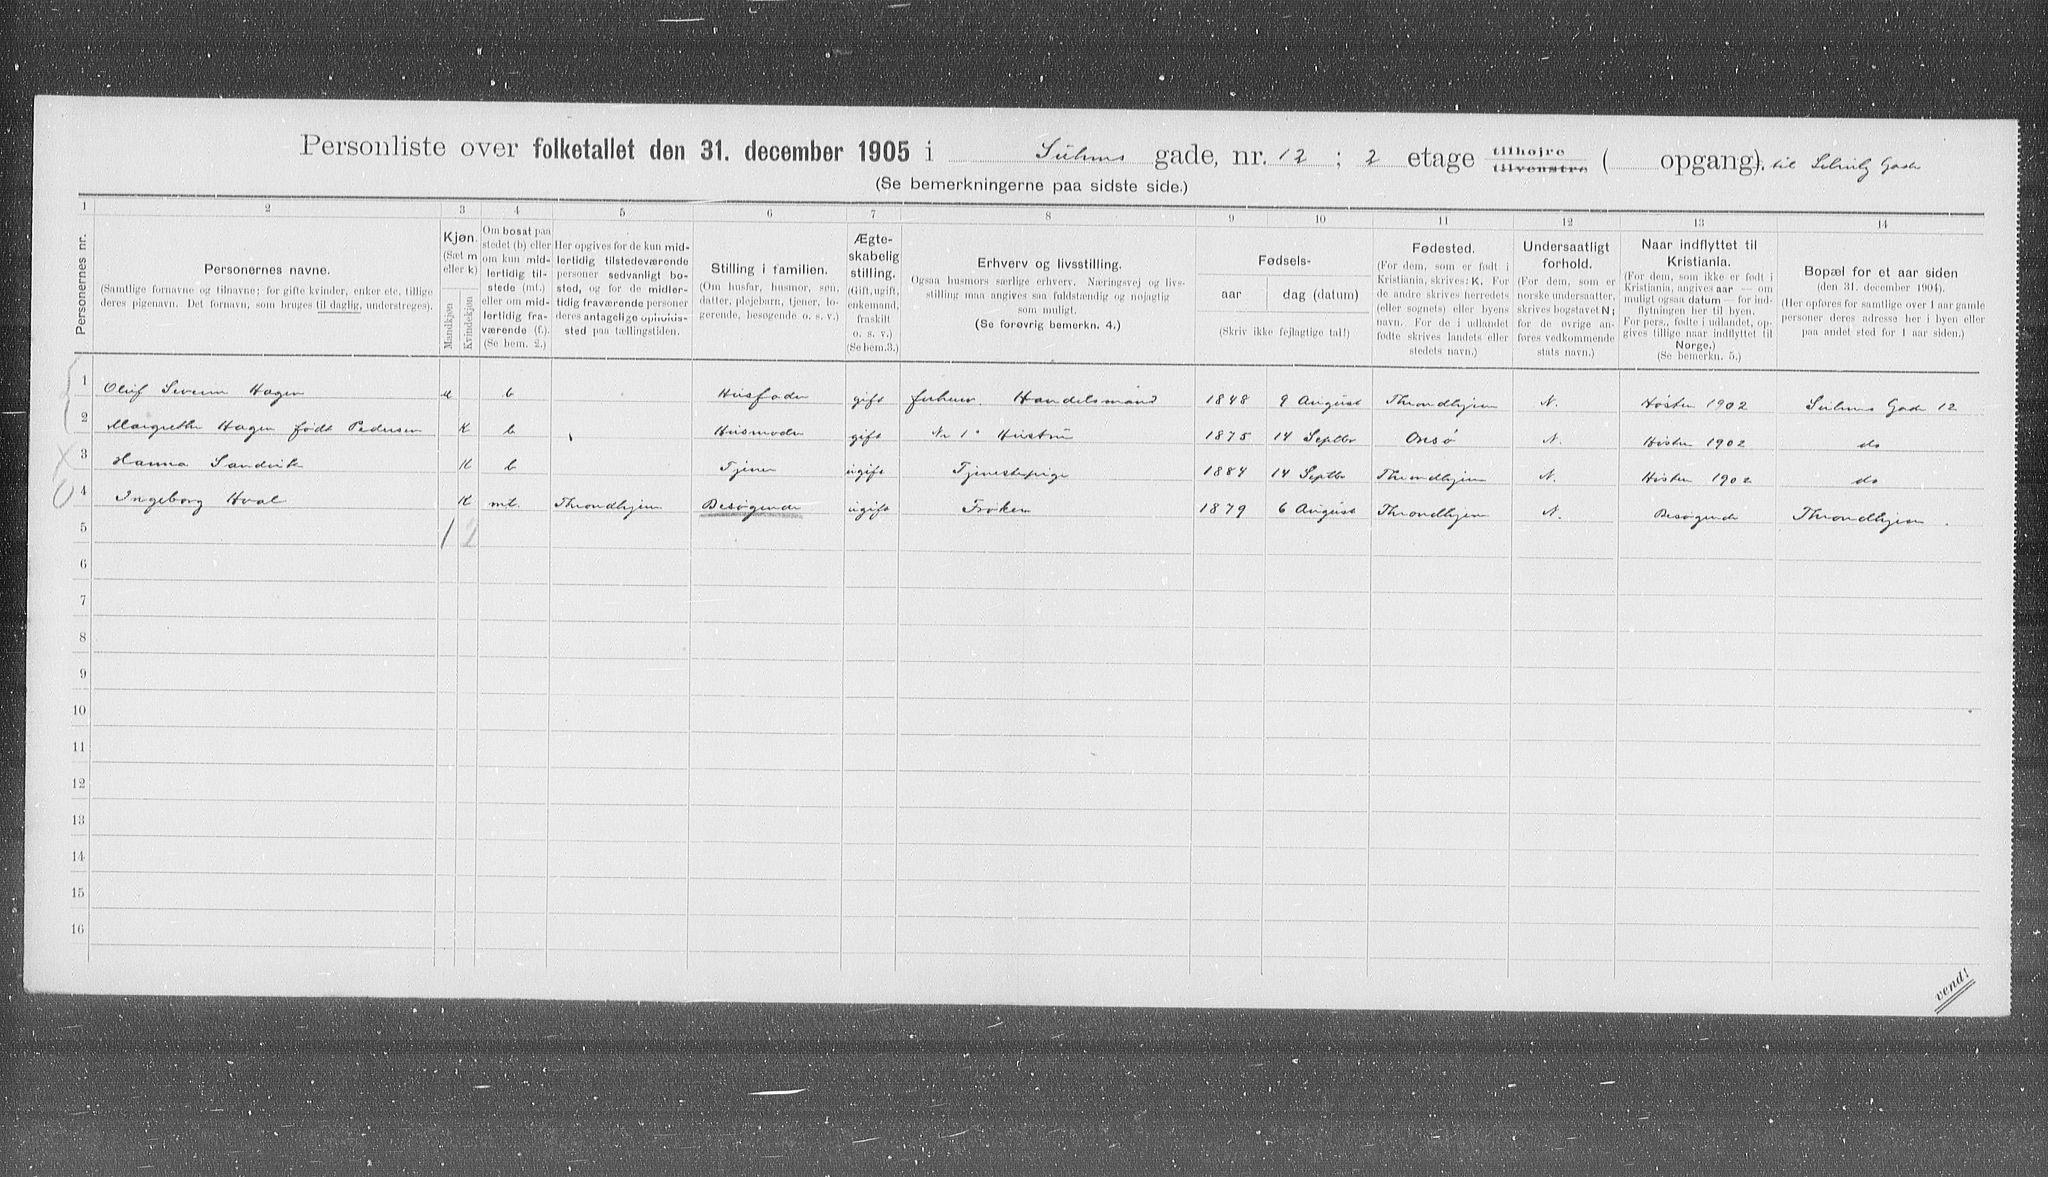 Personliste over folketallet den 31. december 1905 i Suhms gade, nr. 12 ; 2 etage tilhøjre tilvenstre ( opgang). til Gade
(Se bemerkningerne paa sidste side.)
1 2 3 4 5 6 7 8 9 10 11 12 13 14
Personernes nr.
Personernes navne.
(Samtlige fornavne og tilnavne; for gifte kvinder, enker etc. tillige
deres pigenavn. Det fornavn, som bruges til daglig, understreges).
Kjøn.
(Sæt m
eller k)
Mandkjøn
Kvindekjøn
Om bosat paa
stedet (b) eller
om kun mid-
lertidig til-
stede (mt.)
eller om mid-
lertidig fra-
værende (f.).
(Se bem. 2.)
Her opgives for de kun mid-
lertidig tilstedeværende
personer sedvanligt bo-
sted, og for de midler-
tidig fraværende personer
deres antagelige opholds-
sted paa tællingstiden.
Stilling i familien.
(Om husfar, husmor, søn,
datter, plejebarn, tjener, lo-
gerende, besøgende o. s. v.)
Ægte-
skabelig
stilling.
(Gift, ugift,
enkemand,
fraskilt
o. s. v.)
(Se bem.3.)
Erhverv og livsstilling.
Ogsaa husmors særlige erhverv. Næringsvej og livs-
stilling maa angives saa fuldstændig og nøjagtig
som muligt.
(Se forøvrig bemerkn. 4.)
Fødsels-
aar dag (datum)
(Skriv ikke fejlagtige tal!)
Fødested.
(For dem, som er født i
Kristiania, skrives: K. For
de andre skrives herredets
(eller sognets) eller byens
navn. For de i udlandet
fødte skrives landets eller
stedets navn.)
Undersaatligt
forhold.
(For dem, som er
norske undersaatter,
skrives bogstavet N;
for de øvrige an-
føres vedkommende
stats navn.)
Naar indflyttet til
Kristiania.
(For dem, som ikke er født i
Kristiania, angives aar — om
muligt ogsaa datum — for ind-
flytningen her til byen.
For pers., fødte i udlandet, op-
gives tillige naar indflyttet til
Norge.)
(Se bemerkn. 5.)
Bopæl for et aar siden
(den 31. december 1904).
(Her opføres for samtlige over 1 aar gamle
personer deres adresse her i byen eller
paa andet sted for 1 aar siden.)
1 Oluf Severin Hagen m b Husfader gift forhenv. Handelsmand 1848 9 August Throndhjem N. Høsten 1902 Suhms Gade 12
2 Margrethe Hagen født Pedersen K b Husmoder gift Nr 1s Hustru 1875 14 Septbr Onsø N. Høsten 1902 do
3 Hanna Sandvik K b Tjener ugift Tjenestepige 1884 14 Septbr Throndhjem N. Høsten 1902 do
4 Ingeborg Hval K mt. Throndhjem Besøgende ugift Frøken 1879 6 August Throndhjem N. Besøgende Throndhjem.
5 1 2
6
7
8
9
10
11
12
13
14
15
16
vend!